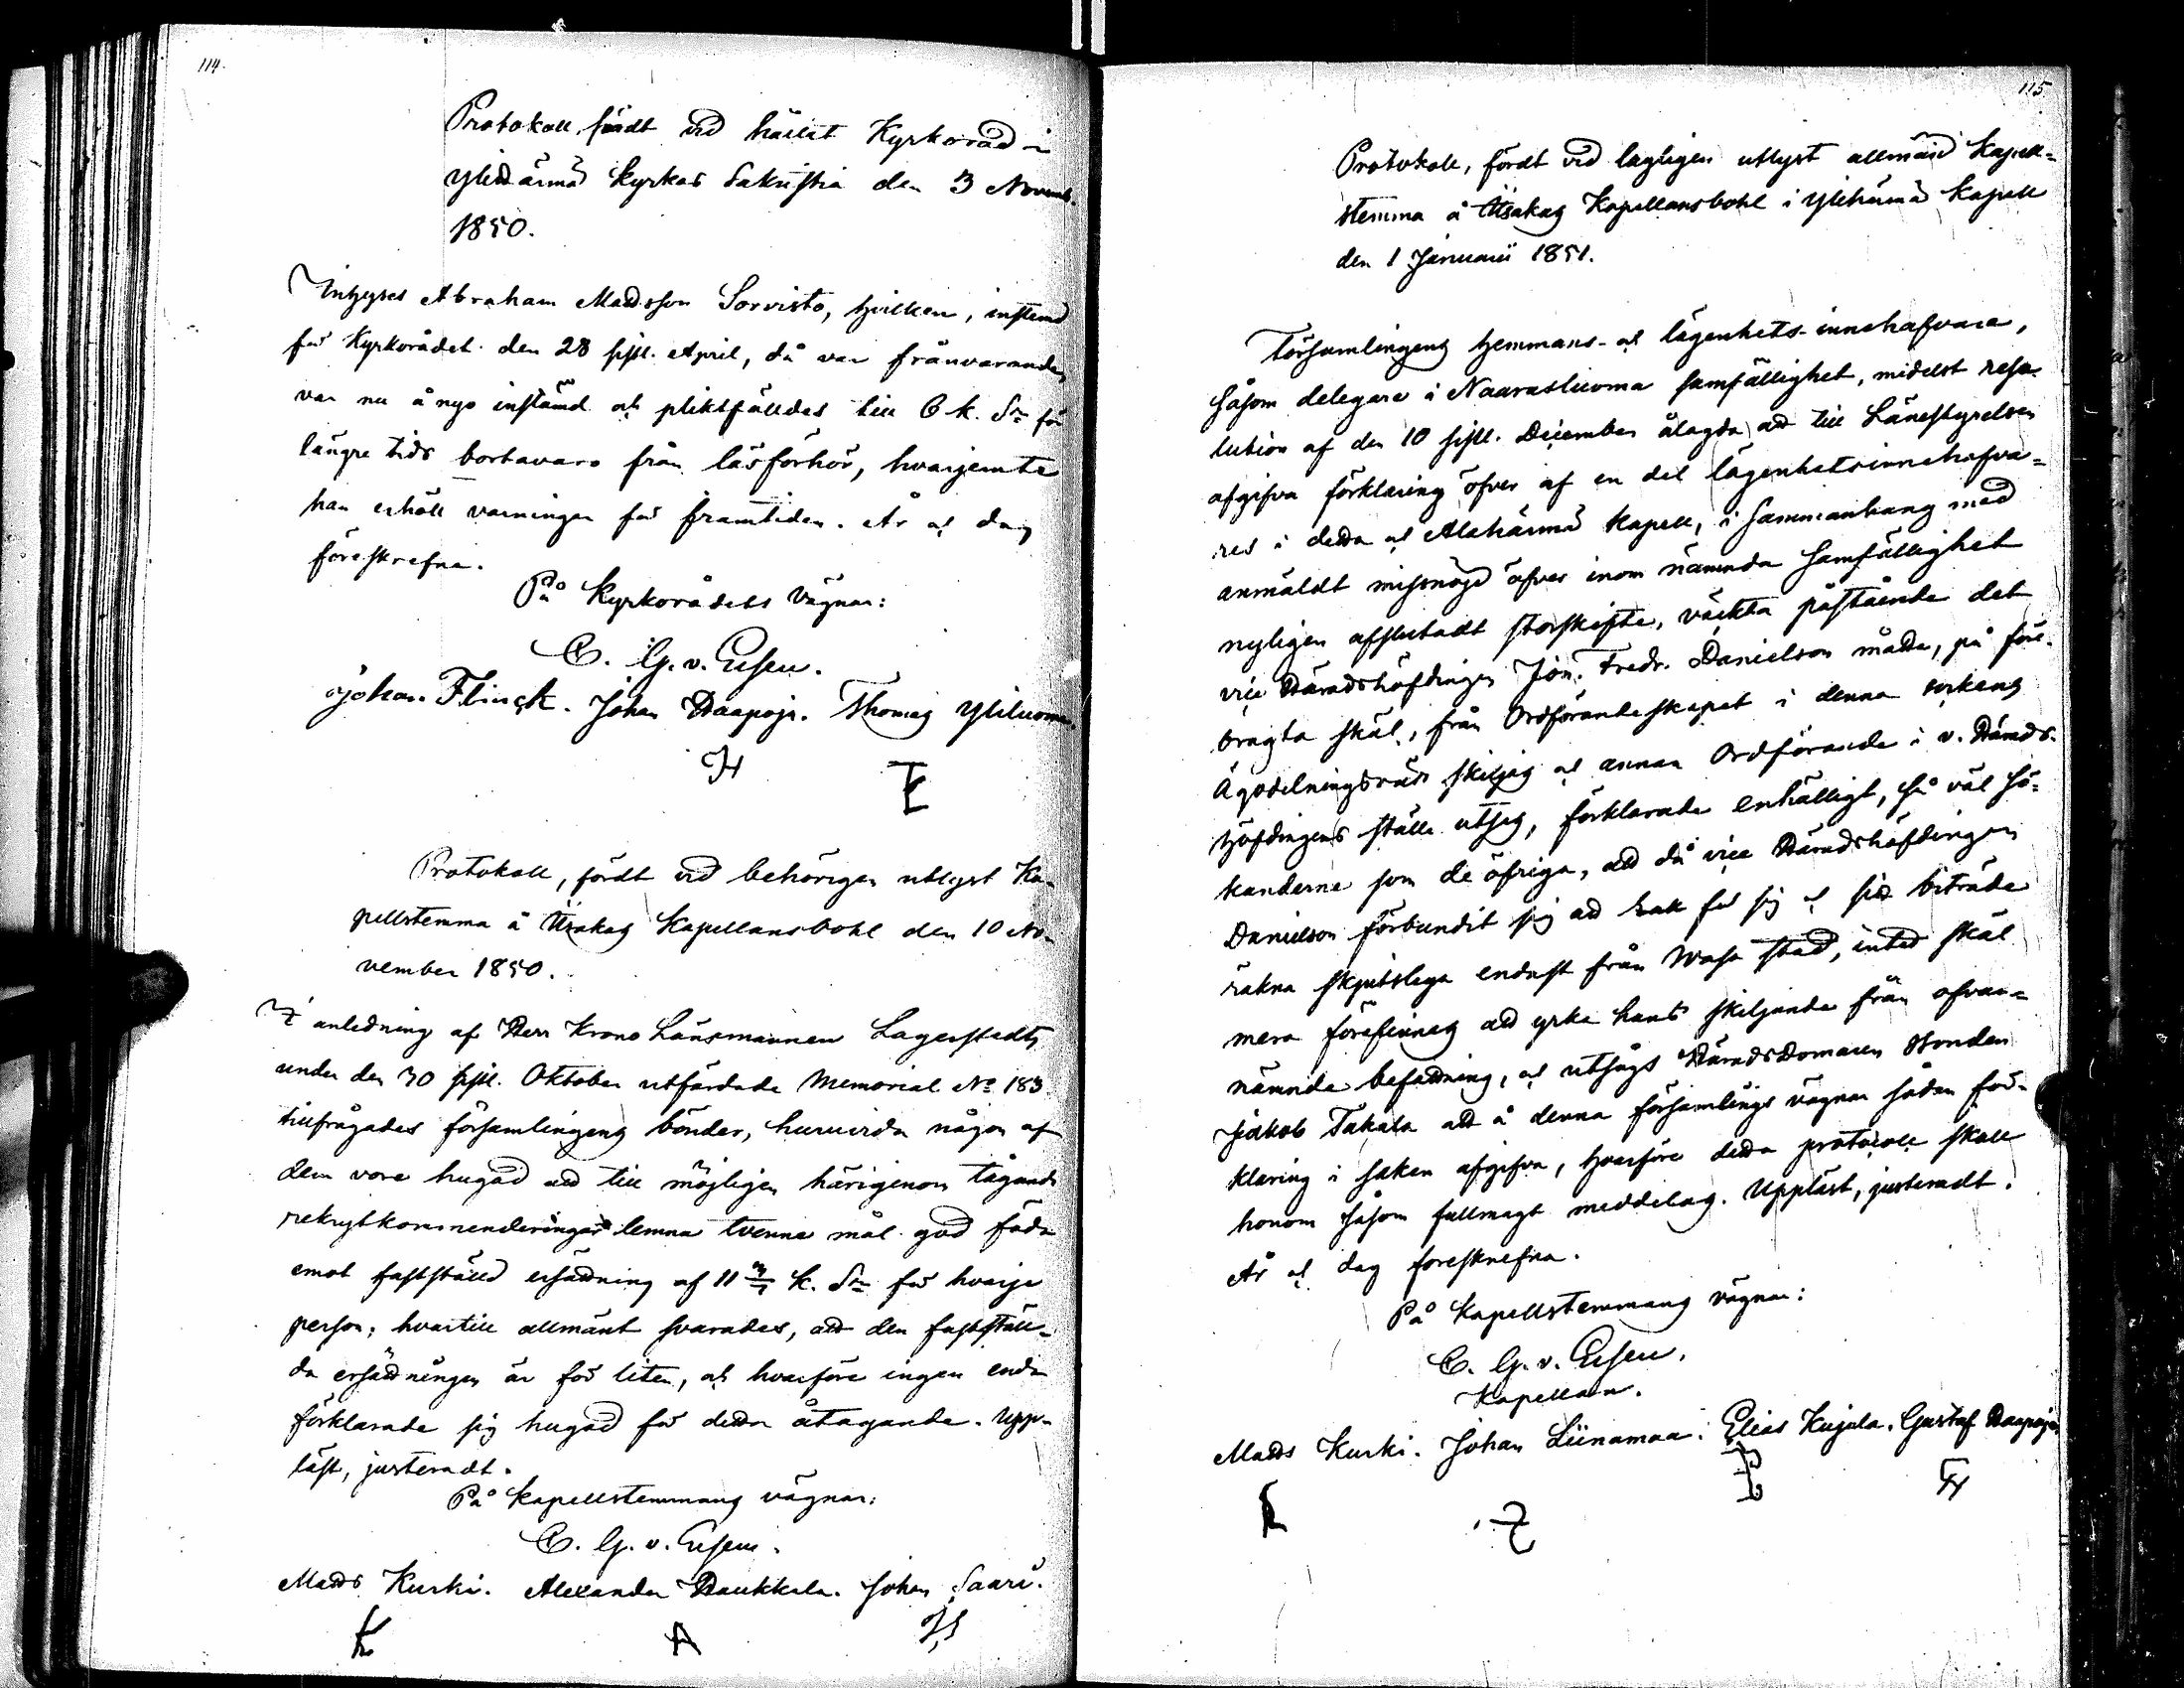 114.
Protokoll, fördt vid hållit Kyrkoråd i
Ylihärmä Kyrkas Sakristia den 3 Novemb.
1850.
Inhyses Abraham Mattsson Sorvisto, hvilken, instämd
för Kyrkorådet den 28 sistl. April, då var frånvarande,
var nu å nyo instämd och pliktfälldes till 6 k. Sr för
längre tids bortavaro från läsförhör, hvarjemte
han erhöll varningar för framtiden. År och dag
föreskrefne.
På Kyrkorådets vägnar:
C. G. v. Essen.
Johan Flinck. Johan Haapoja. Thomas Yliluoma.
Protokoll, fördt vid behörigen utlyst Ka-
pellstemma å Übakas Kapellansbohl den 10 No-
vember 1850.
I anledning af Herr Krono Länsmannen Lagerstedts
under den 30 sistl. Oktober utfärdade Memorial No 183
tillfrågades församlingens bönder, huruvida någon af
dem vore hugad att till möjligen härigenom tågande
rekrytkommenderingar lemna tvenne mål god föda
emot fastställd ersättning af 11 3/7 k. Sr för hvarje
person; hvartill allmänt svarades, att den fastställ-
da ersättningen är för liten, och hvarföre ingen enda
förklarade sig hugad för detta åtagande. Upp-
läst, justeradt.
På Kapellstemmans vägnar:
C. G. v. Essen.
Matts Kurki. Alexander Haukkala. Johan Saari.
115
Protokoll, fördt vid lagligen utlyst allmän Kapell-
stemma å Kapellansbohl i Ylihärmä Kapell
den 1 Januarii 1851.
Församlingens hemmans- och lägenhets-innehafvare,
såsom delegare i Naarasluoma samfällighet, medelst reso-
lution af den 10 sistl. December ålagda att till Länestyrelsen
afgifva förklaring öfver af en del lägenhetsinnehafva-
res i detta och Alahärmä Kapell, i sammanhang med
anmäldt missnöje öfver inom nämnda samfällighet
nyligen afslutadt storskifte, väckta påstående det
vice Häradshöfdingen Jon. Fredr. Danielson måtte, på före-
bragta skäl, från Ordförandeskapet i denna sockens
Ägodelningsrätt skiljas och annan Ordförande i v. Härads-
höfdingens ställe utses, förklarade enhälligt, så väl sö-
kanderne som de öfriga, att då vice Häradshöfdingen
Danielson förbundit sig att för sig och sitt biträde
räkna skjutslega endast från Wasa stad, intet skäl
mera förefinnes att yrka hans skiljande från ofvan-
nämnde befattning, och utsågs Häradsdomaren Bonden
Jakob Takala att å denna församlings vägnar sådan för-
klaring i saken afgifva, hvarföre detta protocoll skall
honom såsom fullmagt meddelas. Uppläst, justeradt.
År och dag föreskrefna.
På Kapellstemmans vägnar:
C. G. v. Essen.
Kapellan.
Matts Kurki. Johan Liinamaa. Elias Kujala. Gustaf Haapoja